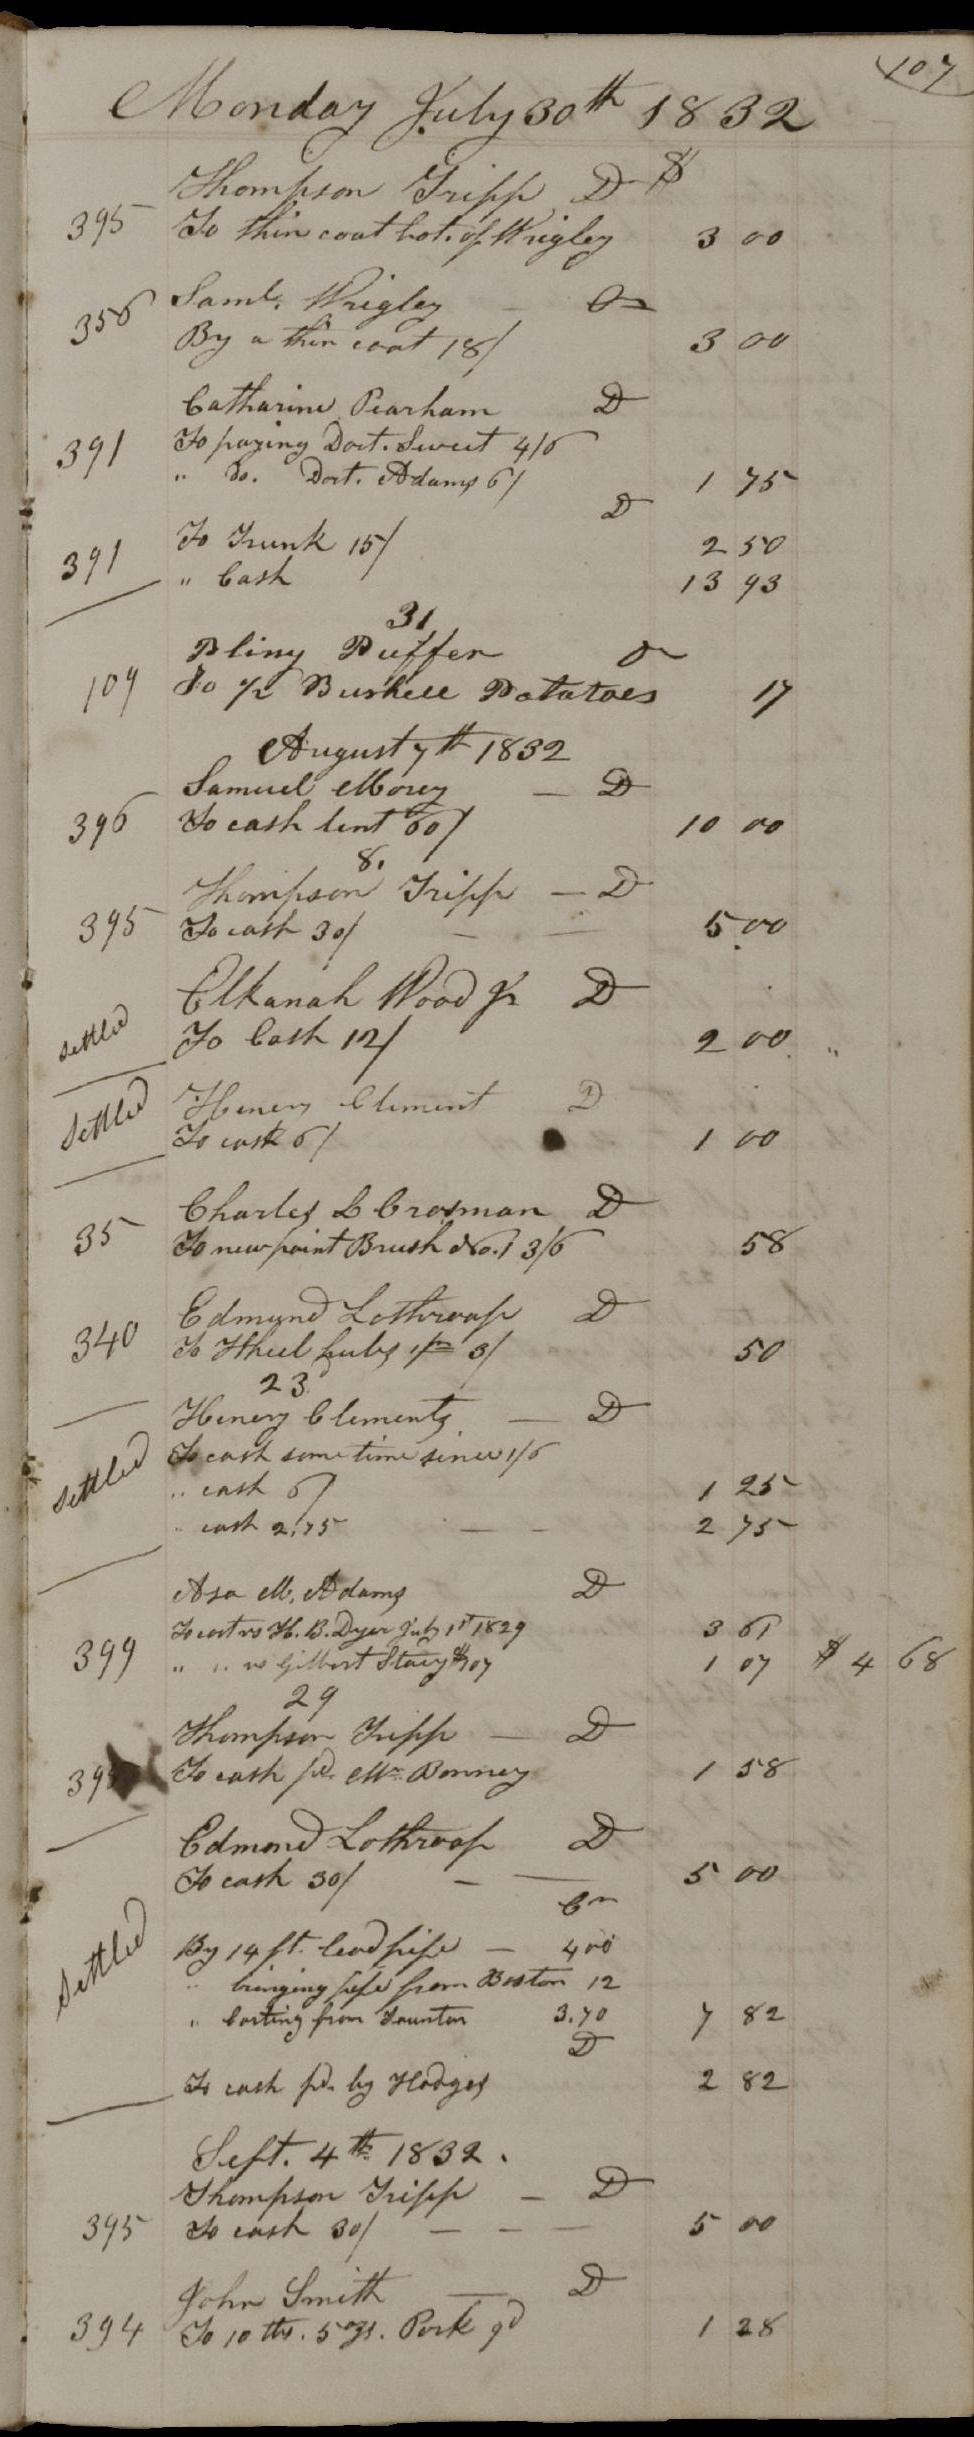 107
Monday July 30th 1832
Thompson Tripp D $
395 To thin coat bot. of Wrigley 3 00
356 Saml. Wrigley — Cr
By a thin coat 18/ 3 00
Catharine Pearham D
391 To paying Doct. Sweet 4/6
" do. Doct. Adams 6/ 1 75
D
391 To Trunk 15/ 2 50
" Cash 13 93
31
Pliny Puffer Cr
109 To 1/2 Bushell Potatoes 17
August 7th 1832
Samuel Morey — D
396 To cash lent 60/ 10 00
8.
Thompson Tripp — D
395 To cash 30/ — — 5 00
Elkanah Wood Jr D
Settled To Cash 12/ 2 00
Settled Henery Clement D
To cash 6/ 1 00
Charles L Crosman D
35 To new paint Brush No. 1 3/6 58
Edmund Lothroop D
340 To Wheel hubs 1 pr 3/ 50
23
Henery Clements — D
Settled To cash some time since 1/6
" cash 6/ 1 25
" cash 2.75 — — 2 75
Asa M. Adams D
To cost vs H. B. Dyer July 1st 1829 3 61
399 " " vs Gilbert Stacy $1.07 1 07 $ 4 68
29
Thompson Tripp — D
395 To cash pd. Mr. Bonney 1 58
Edmond Lothroop D
To cash 30/ — — 5 00
Cr
Settled By 14 ft. lead pipe — 400
" bringing pipe from Boston 12
" Carting from Taunton 3.70 7 82
D
To cash pd. by Hodges 2 82
Sept. 4th 1832.
Thompson Tripp — D
395 To cash 30/ — — — 5 00
John Smith — D
394 To 10 lbs. 5 ozs. Pork 9d 1 28